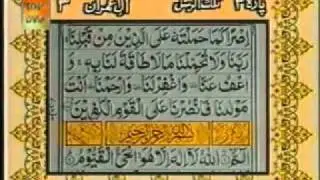 پاره ۳ تلك الرسل ال عمران ۳
اِصْرًا كَمَا حَمَلْتَهٗ عَلَى الَّذِيْنَ مِنْ قَبْلِنَا
رَبَّنَا وَلَا تُحَمِّلْنَا مَا لَا طَاقَةَ لَنَا بِهٖ وَ
اعْفُ عَنَّا وَاغْفِرْ لَنَا وَارْحَمْنَا اَنْتَ
مَوْلٰىنَا فَانْصُرْنَا عَلَى الْقَوْمِ الْكٰفِرِيْنَ
بسم الله الرحمن الرحيم
الٓمّٓ اللّٰهُ لَاۤ اِلٰهَ اِلَّا هُوَ الْحَىُّ الْقَيُّوْمُ